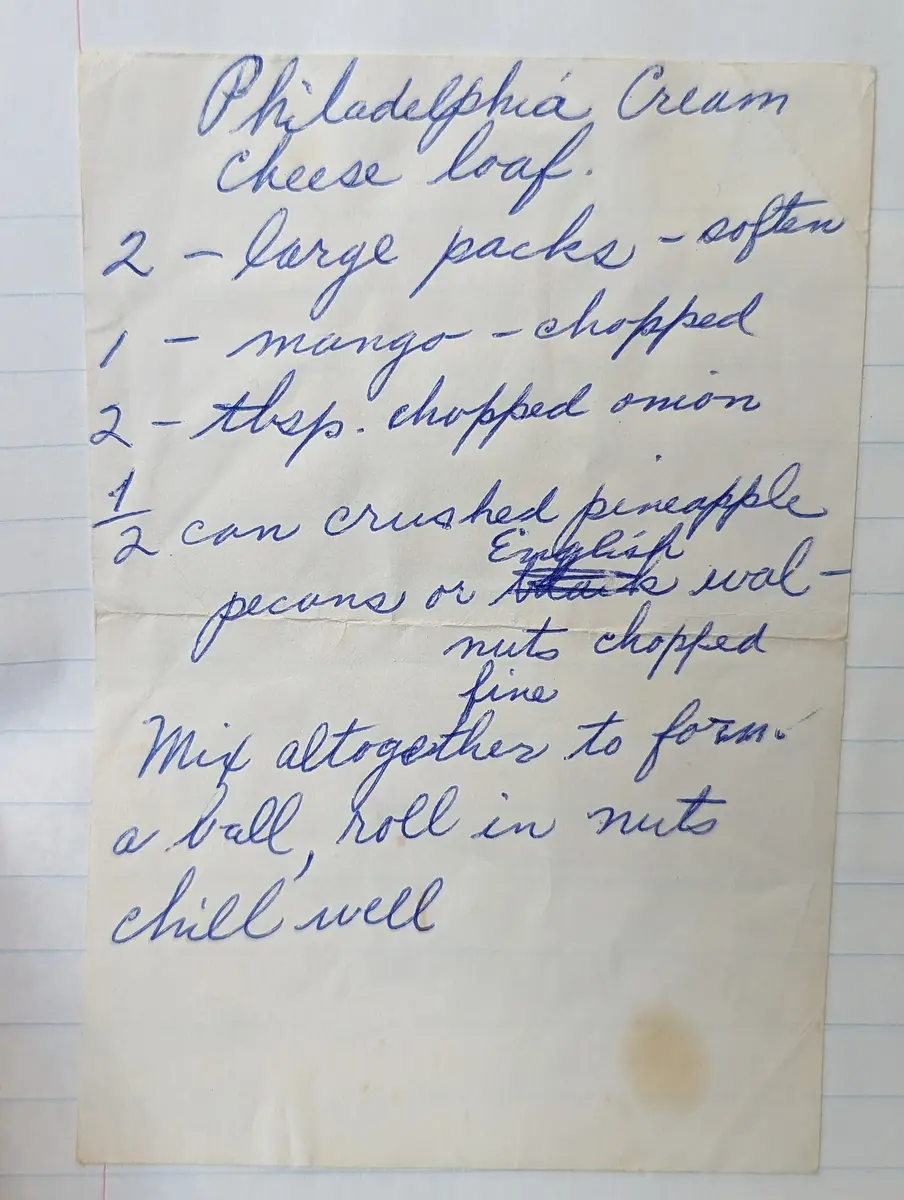 Philadelphia Cream
cheese loaf.
2 - large packs - soften
1 - mango - chopped
2 - tbsp. chopped onion
1/2 can crushed pineapple
English
pecans or black wal-
nuts chopped
fine
Mix altogether to form
a ball, roll in nuts
chill well